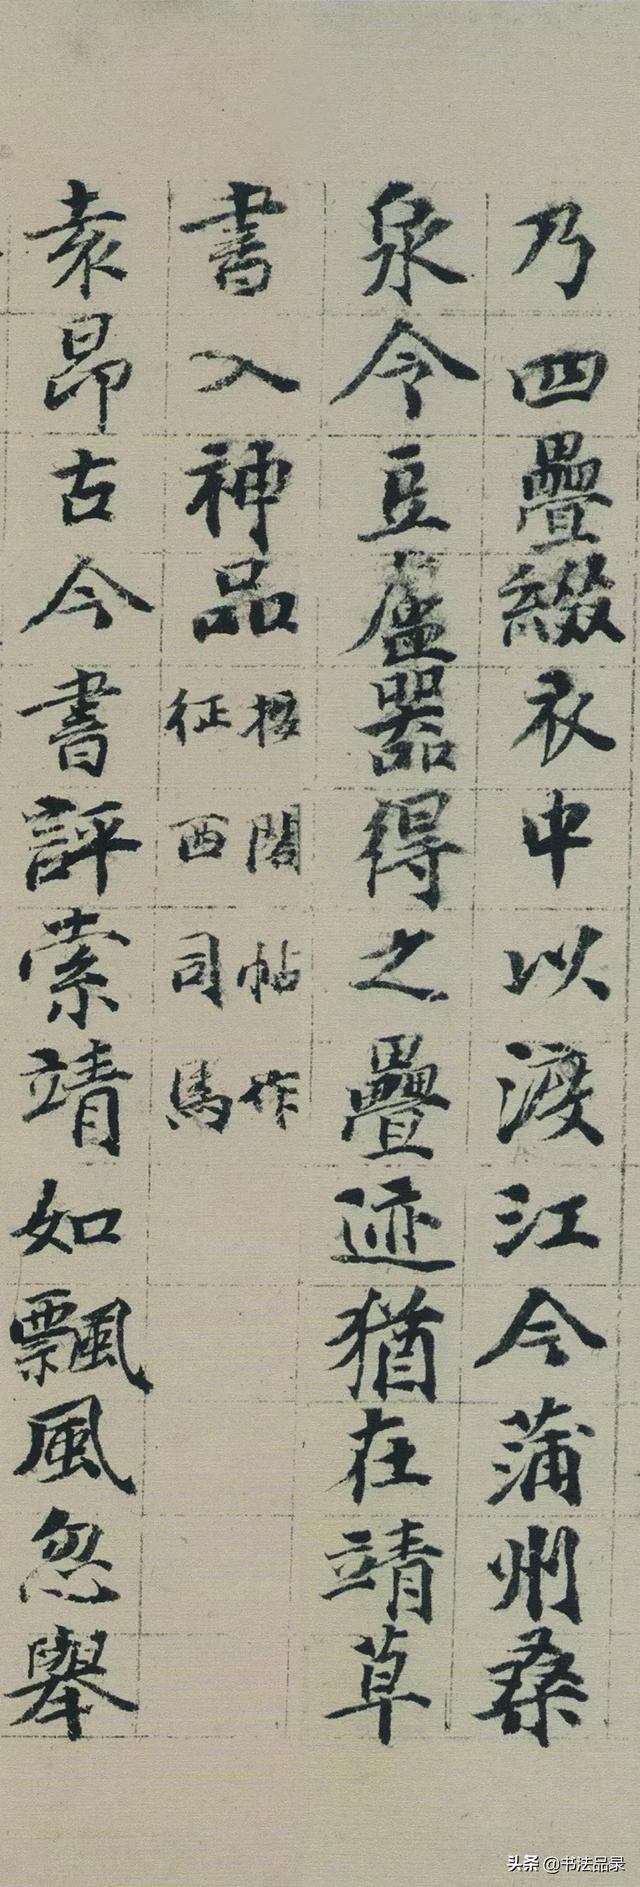 乃四疊綴衣中以渡江今蒲州桑
泉令豆盧器得之疊迹猶在靖草
書入神品
按閣帖作
征西司馬
袁昂古今書評索靖如飄風忽舉
头条 @书法品录